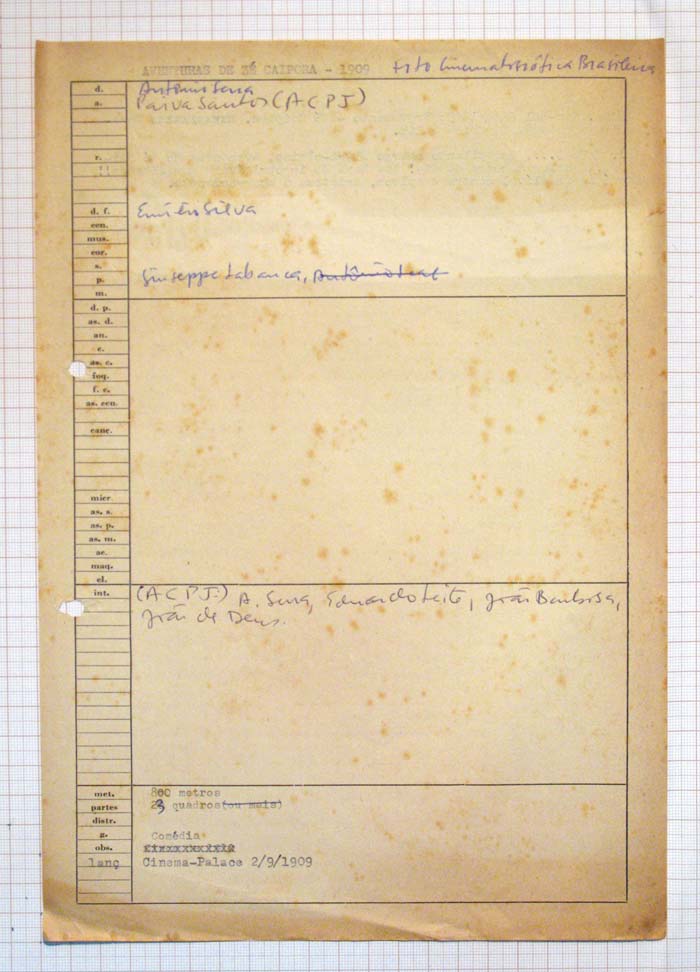 AVENTURAS DE ZÉ CAIPORA - 1909 Foto Cinematográfica Brasileira
d. Antônio Serra
a. Paiva Santos (ACPJ)
r.
!!
d. f. Emílio Silva
cen.
mus.
cor.
s.
p. Giuseppe Labanca, Antônio Leal
m.
d. p.
as. d.
an.
c.
as. c.
foq.
f. c.
as. cen.
canc.
micr.
as. s.
as. p.
as. m.
ac.
maq.
el.
int. (ACPJ.) A. Serra, Eduardo Leite, João Barbosa,
João de Deus.
met. 800 metros
partes 23 quadros(ou mais)
distr.
g. Comédia
obs.
lanç Cinema-Palace 2/9/1909